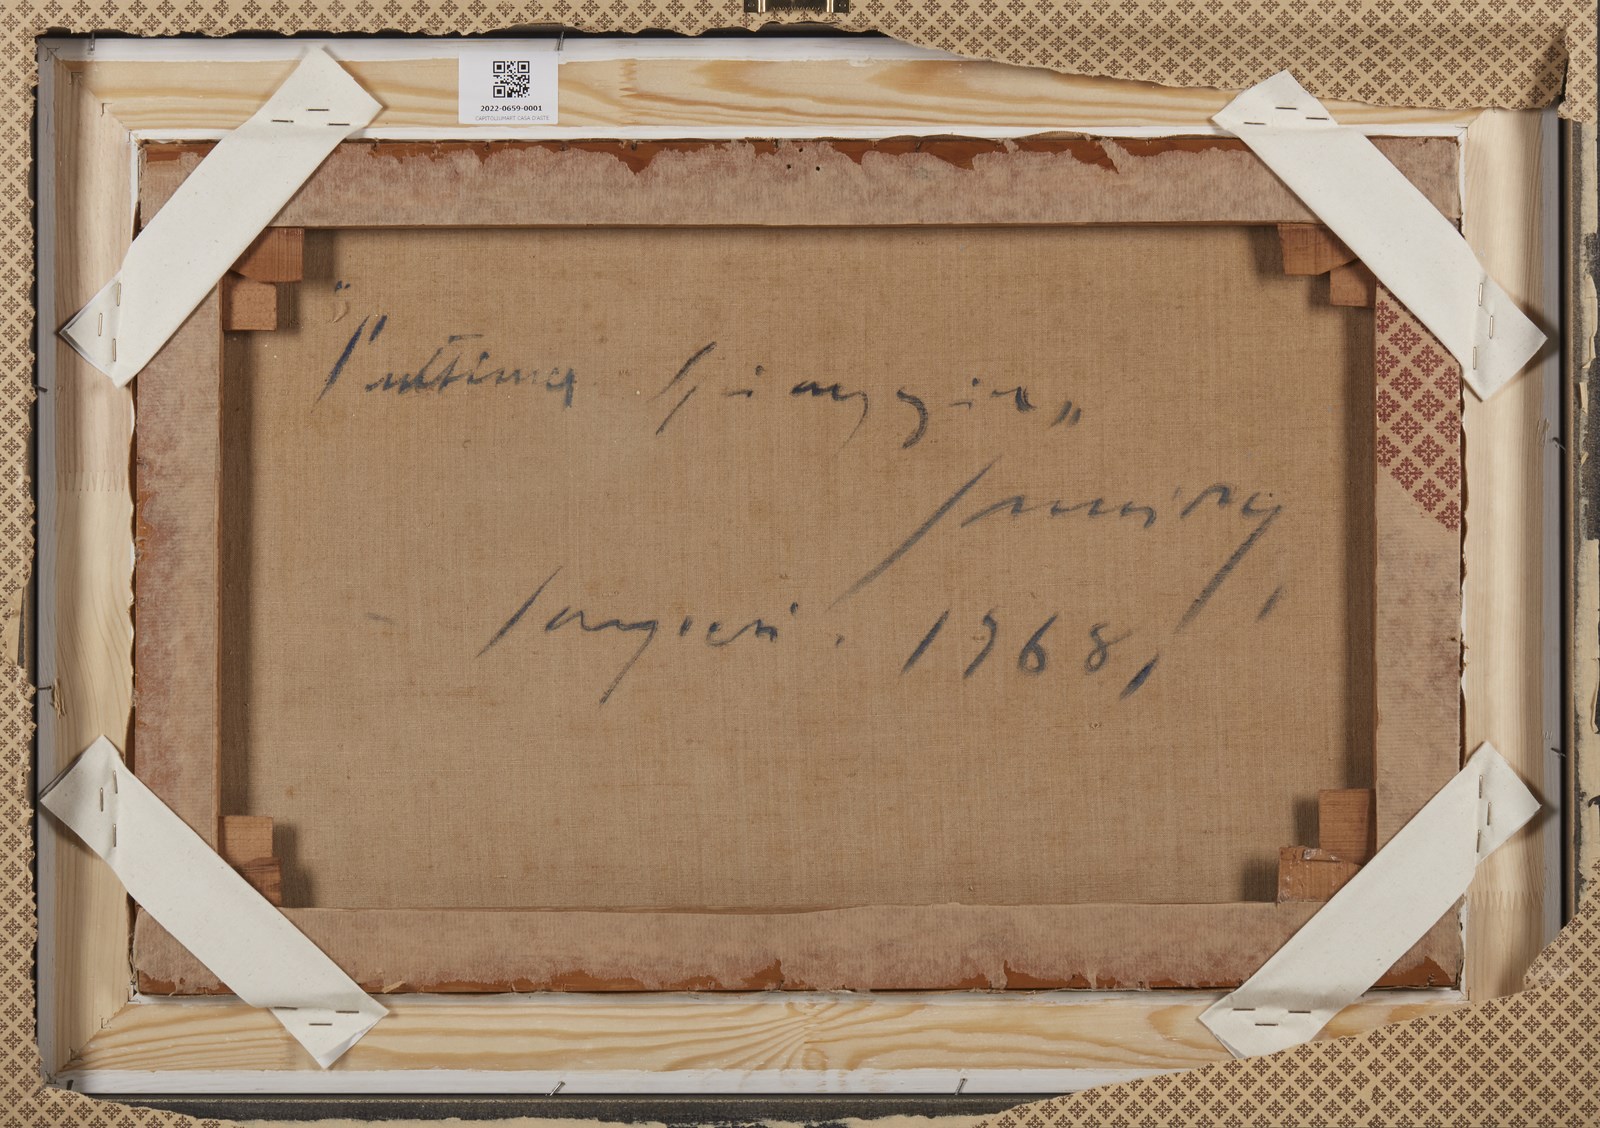 2022-0659-0001
CAPITOLIUMART CASA D'ASTE
"l'ultima Spiaggia„
1968,